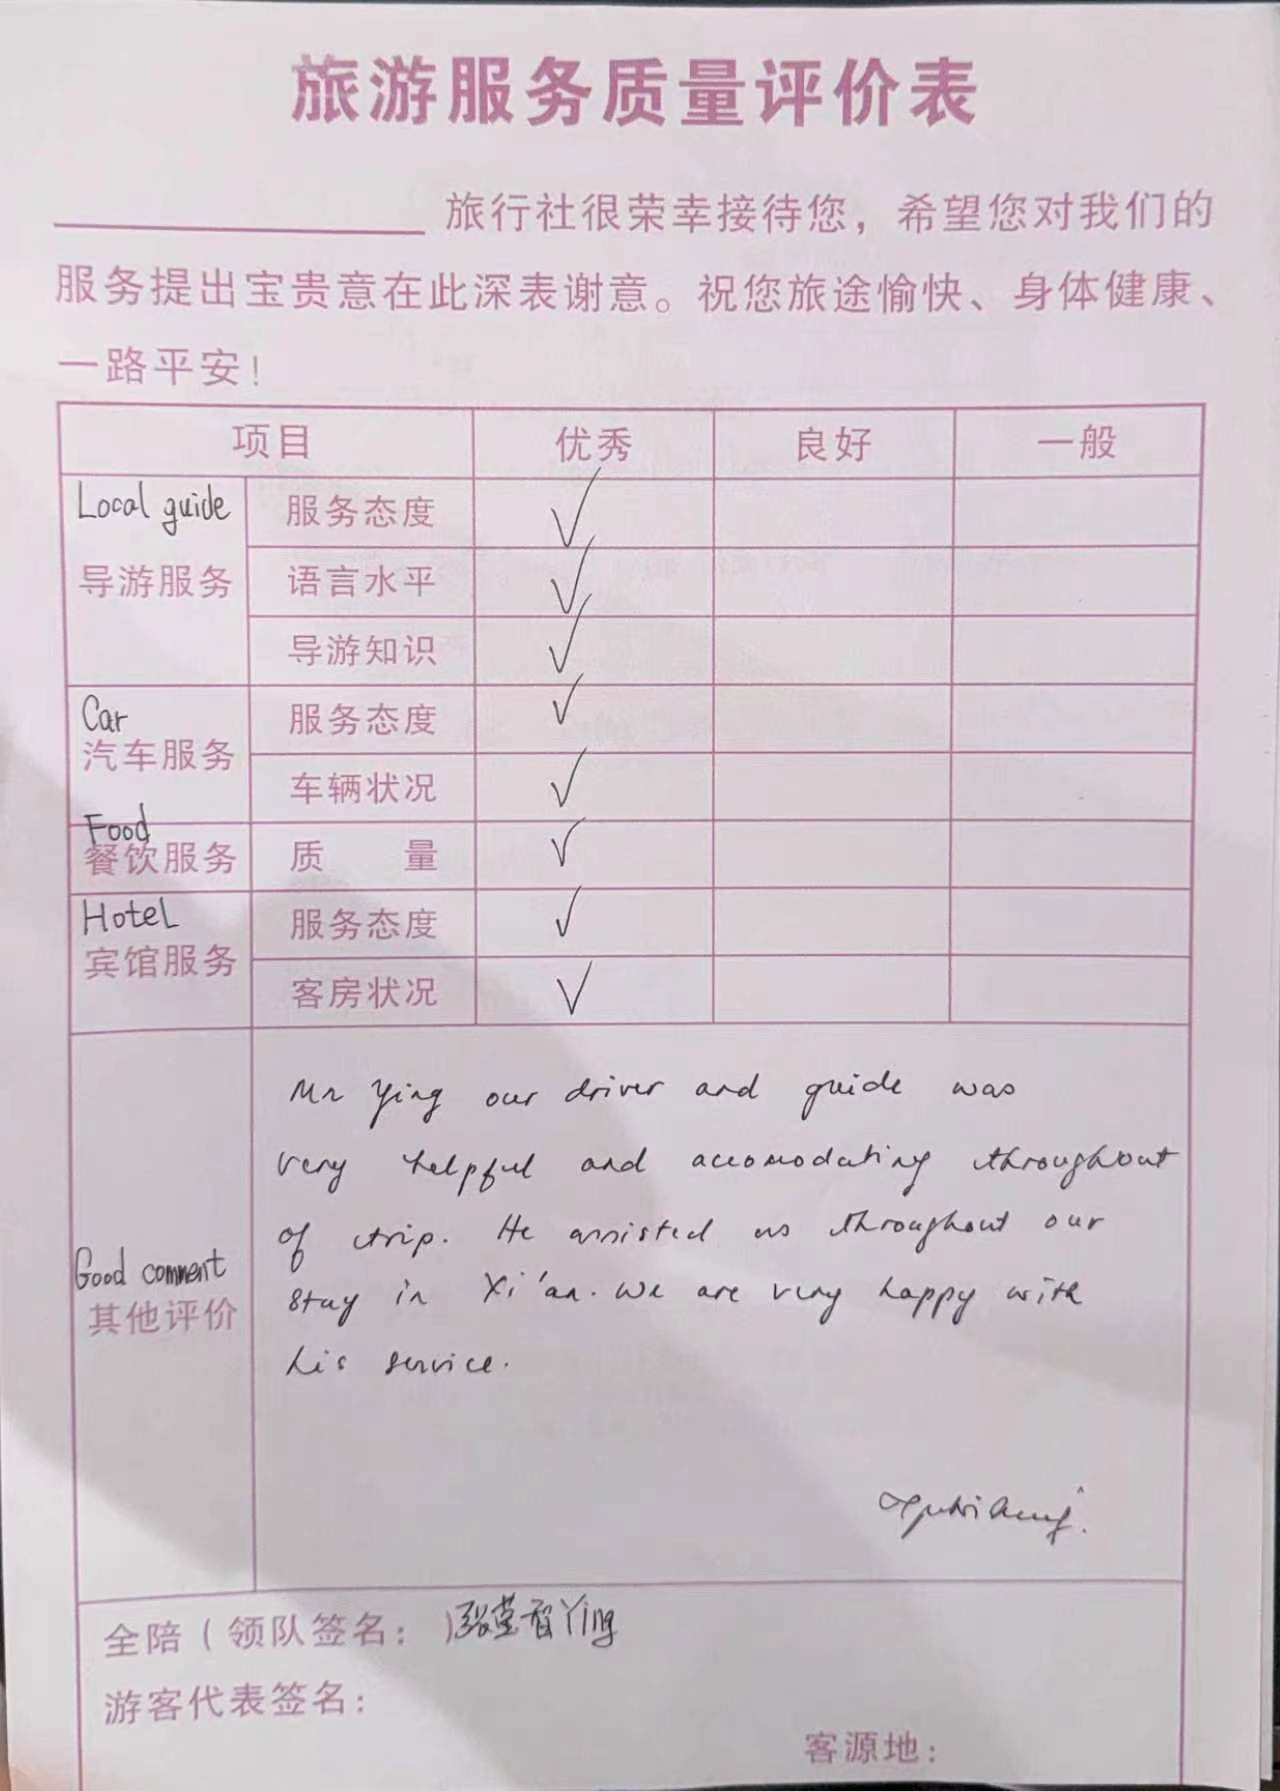 旅游服务质量评价表
旅行社很荣幸接待您，希望您对我们的
服务提出宝贵意在此深表谢意。祝您旅途愉快、身体健康、
一路平安！
项目 优秀 良好 一般
Local guide
导游服务
服务态度 ✓
语言水平 ✓
导游知识 ✓
Car
汽车服务
服务态度 ✓
车辆状况 ✓
Food
餐饮服务 质 量 ✓
Hotel
宾馆服务
服务态度 ✓
客房状况 ✓
Good comment
其他评价
Mr Ying our driver and guide was
very helpful and accomodating throughout
of trip. He assisted us throughout our
stay in Xi'an. We are very happy with
his service.
全陪（领队签名：） Ying
游客代表签名：
客源地：